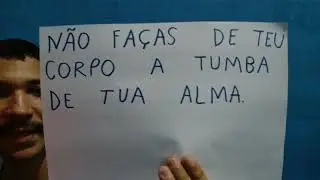 NÃO FAÇAS DE TEU
CORPO A TUMBA
DE TUA ALMA.